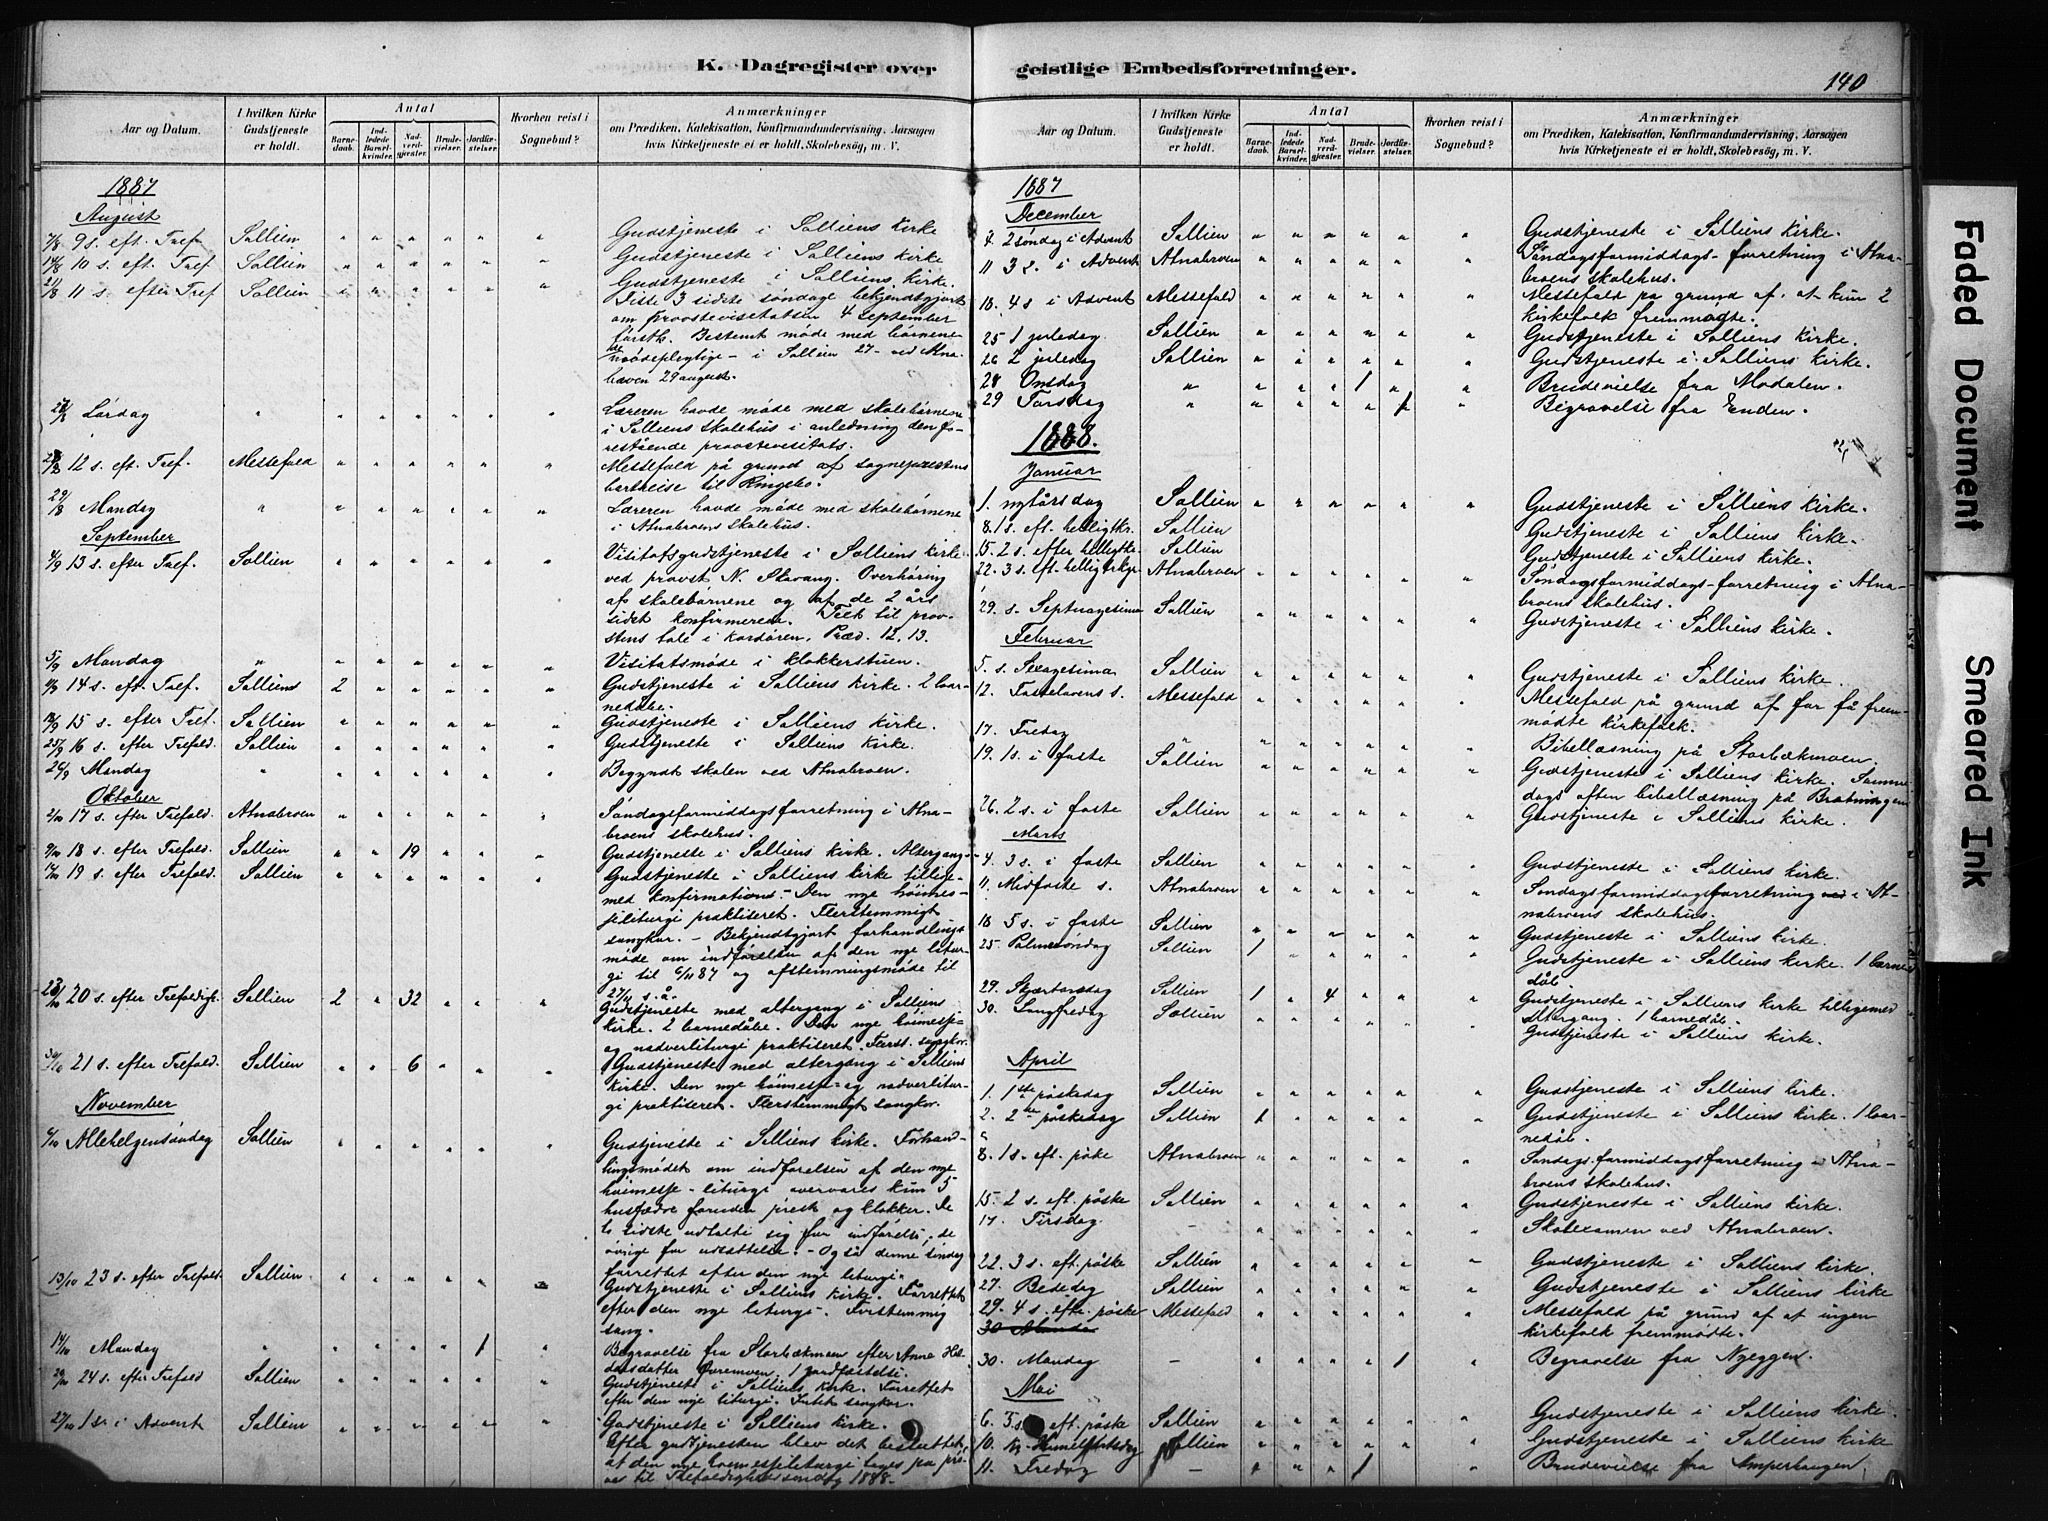 K. Dagregister over geistlige Embedsforretninger.
140
Aar og Datum.
I hvilken Kirke Gudstjeneste er holdt.
Antal
Barnedaab.
Indledede Barselkvinder.
Nadverdgjester.
Brudevielser.
Jordfæstelser.
Hvorhen reist i Sognebud?
Anmærkninger
om Prædiken, Katekisation, Konfirmandundervisning, Aarsagen
hvis Kirketjeneste ei er holdt, Skolebesøg, m. V.
1887
August
7/8 9 s. eft. Tref. Sollien Gudstjeneste i Solliens Kirke
14/8 10 s. eft. Tref. Sollien Gudstjeneste i Solliens Kirke
21/8 11 s. efter Tref Sollien Gudstjeneste i Solliens Kirke.
Siste 3 sidste søndage bekjendtgjort
om provstevisitatsen 4 September
førstk. Bestemt møde med børnene
de mødepligtige - i Sollien 27 - ved Atna-
broen 29 august.
27/8 Lørdag Læreren havde møde med skolebørnene
i Solliens skolehus i anledning den fo-
restående provstevisitats.
28/8 12 s. eft. Tref. Messefald Messefald på grund af sogneprestens
bortreise til Ringebo.
29/8 Mandag Læreren havde møde med skolebørnene
i Atnabroens skolehus.
September
4/9 13 s. efter Tref. Sollien Visitatsgudstjeneste i Solliens kirke
ved provst N. Stavang. Overhøring
af skolebørnene og af de 2 års
sidst konfirmerede. Text til prov-
stens tale i kordøren, Præd. 12, 13.
5/9 Mandag Visitatsmøde i klokkerstuen.
11/9 14 s. eft. Tref. Solliens 2 Gudstjeneste i Solliens Kirke. 2 bar-
nedåbe.
18/9 15 s. efter Tref. Sollien Gudstjeneste i Solliens Kirke.
25/9 16 s. efter Trefold. Sollien Gudstjeneste i Solliens Kirke.
26/9 Mandag Begyndt skolen ved Atnabroen.
Oktober
2/10 17 s. efter Trefold. Atnabroen Søndagsformiddagsforretning i Atna-
broens skolehus.
9/10 18 s. efter Trefold. Sollien 19 Gudstjeneste i Solliens Kirke. Altergang.
16/10 19 s. efter Trefold. Sollien Gudstjeneste i Solliens Kirke tillige-
med konfirmation. - Den nye høimes-
seliturgi praktiseret. Flerstemmigt
sangkor. - Bekjendtgjort forhandlings-
møde om indførelsen af den nye litur-
gi til 6/11 87 og afstemningsmøde til
27/11 s. å.
23/10 20 s. efter Trefoldigh. Sollien 2 32 Gudstjeneste med altergang i Solliens
kirke. 2 barnedåbe. Den nye høimesse-
og nadverliturgi praktiseret. Flerst. sangkor.
30/10 21 s. efter Trefold. Sollien 6 Gudstjeneste med altergang i Solliens
Kirke. Den nye høimesse- og nadverlitur-
gi praktiseret. Flerstemmigt sangkor.
November
6/10 Allehelgensøndag Sollien Gudstjeneste i Solliens Kirke. Forhand-
lingsmødet om indførelsen af den nye
høimesse-liturgi overvares kun 5
husfædre foruden prest og klokker. De
to sidste udtalte sig for indførelse, de
øvrige for udsættelse. - Også denne søndag
forrettet efter den nye liturgi.
13/10 23 s. efter Trefold. Sollien. Gudstjeneste i Solliens Kirke. Forrettet
efter den nye liturgi. Tvistemmig
sang.
14/10 Mandag 1 Begravelse fra Storbækmoen efter Anne
Øvremoen. 1 jordfæstelse.
20/10 24 s. efter Trefold Sollien Gudstjeneste i Solliens Kirke. Forrettet
efter den nye liturgi. Intet sangkor.
27/10 1 s. i Advent Sollien Gudstjeneste i Solliens Kirke.
Efter gudtjenesten blev det besluttet
at den nye høimesseliturgi tages på prø-
ve til Trefoldighedssøndag 1888.
Aar og Datum.
I hvilken Kirke Gudstjeneste er holdt.
Antal
Barnedaab.
Indledede Barselkvinder.
Nadverdgjester.
Brudevielser.
Jordfæstelser.
Hvorhen reist i Sognebud?
Anmærkninger
om Prædiken, Katekisation, Konfirmandundervisning, Aarsagen
hvis Kirketjeneste ei er holdt, Skolebesøg, m. V.
1887
December
4. 2 søndag i Advent Sollien Gudstjeneste i Solliens Kirke.
11 3 s. i Advent Atnabroen Søndagsformiddags-forretning i Atna-
broens skolehus.
18. 4 s i Advent Messefald Messefald på grund af, at kun 2
kirkefolk fremmødte.
25 1 juledag Sollien Gudstjeneste i Solliens Kirke.
26 2 juledag Sollien Gudstjeneste i Solliens Kirke.
28 Onsdag 1 Brudevielse fra Modalen.
29 Torsdag 1 Begravelse fra Enden.
1888.
Januar
1. nytårsdag Sollien Gudstjeneste i Solliens Kirke.
8. 1 s. eft. helligtkr. Sollien Gudstjeneste i Solliens Kirke.
15. 2 s. efter helligtkr. Sollien Gudstjeneste i Solliens Kirke.
22. 3 s. eft. helligtrkgr Atnabroen Søndagsformiddags-forretning i Atna-
broens skolehus.
29. s. Septuagesima Sollien Gudstjeneste i Solliens Kirke.
Februar
5. s. Sexagesima Sollien Gudstjeneste i Solliens Kirke.
12. Fastelavens s. Messefald Messefald på grund af for få frem-
mødte kirkefolk.
17. Fredag Bibellæsning på Storbækmoen.
19. 1 s. i faste Sollien Gudstjeneste i Solliens Kirke. Samme
dags aften bibellæsning på Bratningen
26. 2 s. i faste Sollien Gudstjeneste i Solliens Kirke.
Marts
4. 3 s. i faste Sollien Gudstjeneste i Solliens Kirke.
11. Midfaste s. Atnabroen Søndagsformiddagsforretning i At-
nabroens skolehus.
18 5 s. i faste Sollien Gudstjeneste i Solliens Kirke.
25. Palmesøndag Sollien 1 Gudstjeneste i Solliens Kirke. 1 barne-
dåb.
29. Skjærtorsdag Sollien 1 4 Gudstjeneste i Solliens Kirke tilligemed
altergang. 1 barnedåb.
30. Langfredag Sollien Gudstjeneste i Solliens Kirke.
April
1. 1ste påskedag Sollien Gudstjeneste i Solliens Kirke.
2. 2den påskedag Sollien 1 Gudstjeneste i Solliens Kirke. 1 bar-
nedåb.
8. 1 s. eft. påke Atnabroen Søndagsformiddagsforretning - Atna-
broens skolehus.
15. 2 s. eft. påske Sollien Gudstjeneste i Solliens Kirke.
17. Tirsdag. Skolexamen ved Atnabroen.
22. 3 s. eft. påske Sollien Gudstjeneste i Solliens Kirke.
27. Bededag Sollien Gudstjeneste i Solliens Kirke
29. 4 s. eft. påske Messefald Messefald på grund af at ingen
kirkefolk fremmødte.
30 Manda
30. Mandag 1 Begravelse fra Nyeggen.
Mai
6. 5 s. eft. påske Sollien Gudstjeneste i Solliens Kirke.
10. Kr. Himmelfartsdag Sollien Gudstjeneste i Solliens Kirke
11. Fredag 1 Brudevielse fra Amperhaugen.
Faded Document
Smeared Ink